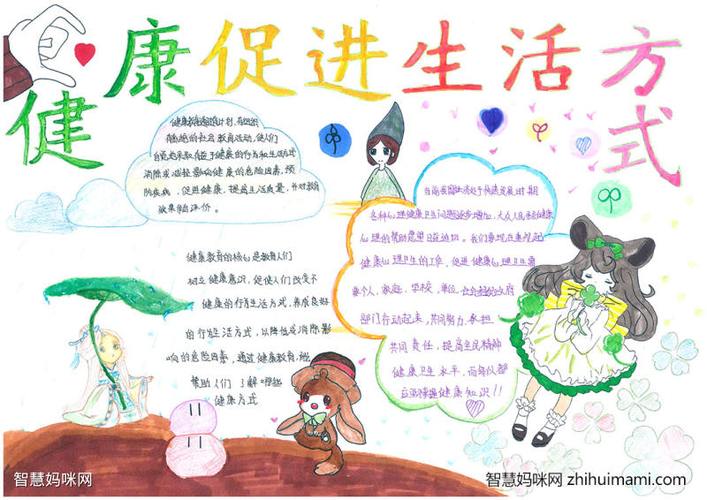 健康促进生活方式
健康教育是有计划，有组织
有系统的社会教育活动，使人们
自觉地采取有益于健康的行为和生活方式
消除或减轻影响健康的危险因素，预
防疾病，促进健康，提高生活质量，并对教育
效果作出评价。
健康教育的核心是教育人们
树立健康意识，促使人们改变不
健康的行为生活方式，养成良好
的行为生活方式，以降低或消除影
响的危险因素，通过健康教育，能
帮助人们了解哪些
健康方式
各种心理健康卫生问题逐步增加，大众人民
心理的帮助愿望日益迫切。我们要
健康心理卫生的工作，促进健康心理卫生需
要个人，家庭，学校，单位，
部门行动起来，共同努力，承担
共同责任，提高全民精神
健康卫生水平，而每人都
应该掌握健康知识！！
智慧妈咪网
智慧妈咪网 zhihuimami.com